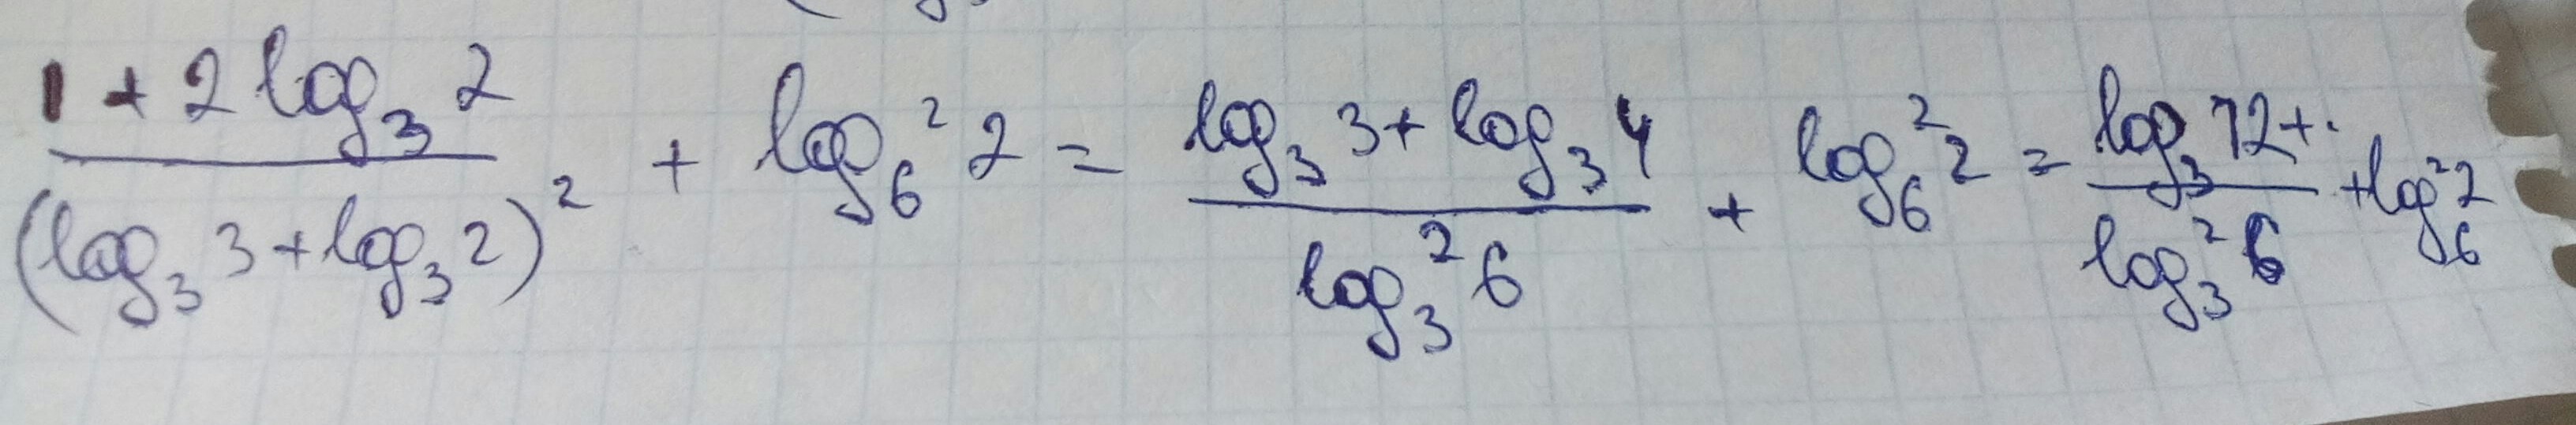 \frac{1 + 2\log_3 2}{(\log_3 3 + \log_3 2)^2} + \log_6^2 2 = \frac{\log_3 3 + \log_3 4}{\log_3^2 6} + \log_6^2 2 = \frac{\log_3 12 +}{\log_3^2 6} + \log_6^2 2